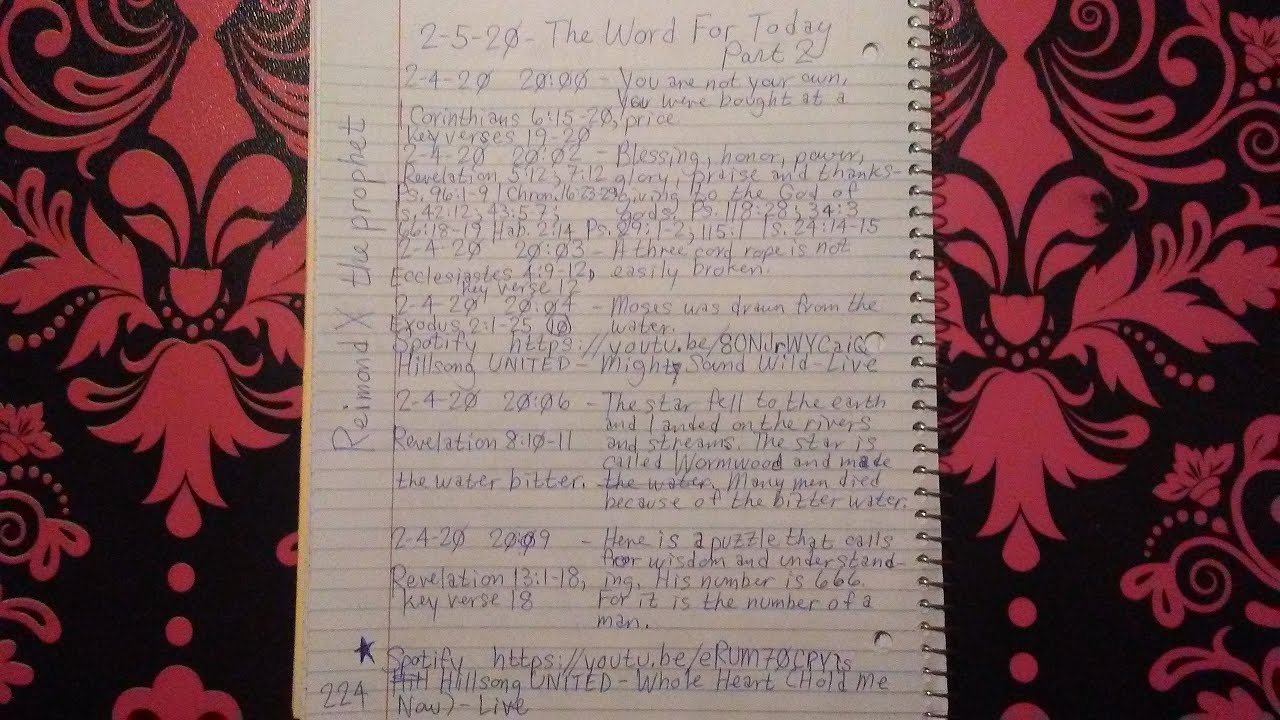 2-5-20- The Word For Today
Part 2
2-4-20 20:00 - You are not your own,
You were bought at a
1 Corinthians 6:15-20, price.
key verses 19-20
2-4-20 20:02 - Blessing, honor, power,
Revelation 5:12; 7:12 glory, praise and thanks-
Ps. 96:1-9 1 Chron. 16:23-29 giving to the God of
Is. 42:12; 43:5-7; gods. Ps. 118:28; 34:3
66:18-19 Hab. 2:14 Ps. 29:1-2, 115:1 Is. 24:14-15
2-4-20 20:03 - A three cord rope is not
Ecclesiastes 4:9-12, easily broken.
key verse 12
2-4-20 20:04 - Moses was drawn from the
Exodus 2:1-25 (10) water.
Spotify https://youtu.be/8ONJrWYCaiQ
Hillsong UNITED - Mighty Sound Wild-Live
2-4-20 20:06 - The star fell to the earth
and landed on the rivers
Revelation 8:10-11 and streams. The star is
called Wormwood and made
the water bitter. the water. Many men died
because of the bitter water.
2-4-20 20:09 - Here is a puzzle that calls
for wisdom and understand-
Revelation 13:1-18, ing. His number is 666.
key verse 18 For it is the number of a
man.
Spotify https://youtu.be/eRUM70CPV7s
Hill Hillsong UNITED - Whole Heart (Hold Me
Now) - Live
224
Reimond X the prophet